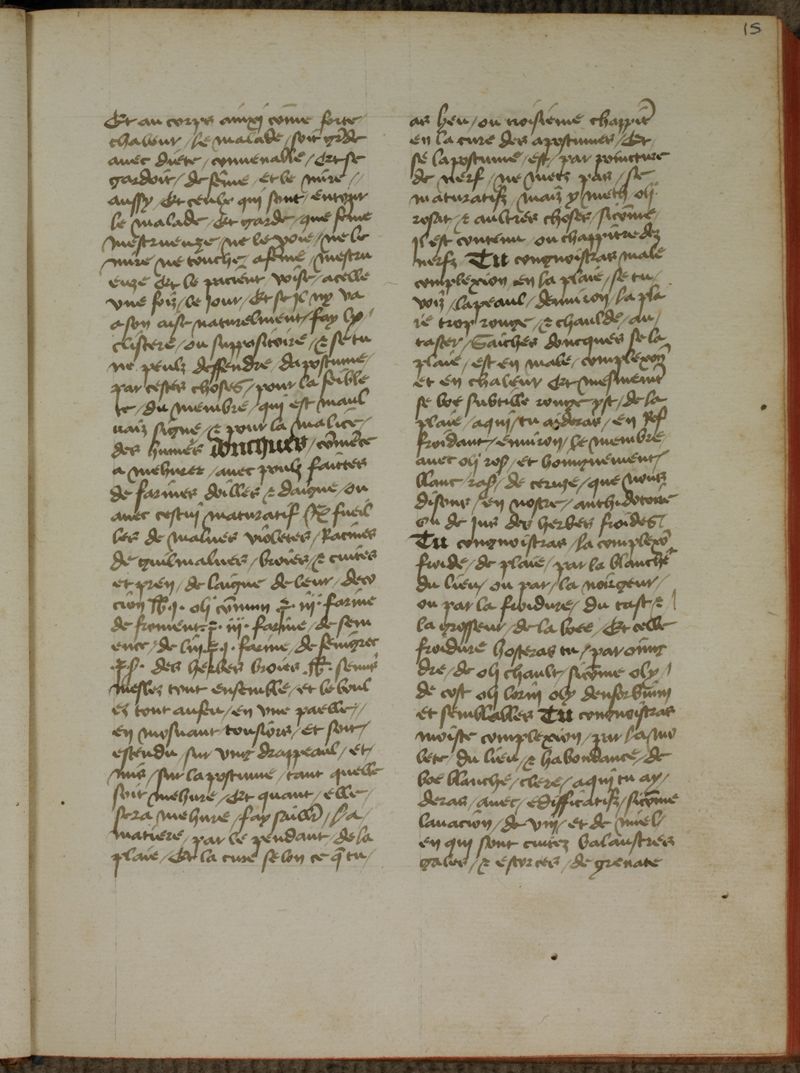 15
Et au corps ainxi cōme forte
chaleur / le malade / soit gͬde
auec diete / conuenable / Et se
gardoit / de fēme / et le mire //
aussy / Et ceulx qui sont / entour
le malade / Et garde / que fēme
mestrueuze / ne le voie / ne le
mire / ne touche / a fēme / mestru
euze Et le pacient voise / a celle
vne foiz / le iour / Et se il ny va
a son aise naturelment / fay ly /
clistere / ou suppositoire / ⁊ se tu
ne peulz deffendre / dapostume /
par cestes choses / pour la feible
te / du membre / qui est maul
uaiz signe / ⁊ pour la malice /
des humeˢ doncques / cōmēce
a mehurer / auec poulz faittes
de farines doilles ⁊ daigue / ou
auec cestui maturatif / ℞ fueil
les de malues violetes / Racines
de guilmalues / broies / ⁊ cuites
et pren / de laigue de leur / deco
cion ℔ .i. oly cōmun ℥ .iii. farine
de froment ℥ .iii. farine / de sem
ence / de lin ℥ .i. farine / de fenigrec
℥ ß. des herbes broies ℔. semis
meslez tout ensemble / et le boul
ez tout au feu / en vne paelle //
en mouuant tousiors / et soit /
estendu / sur vng drappeaul / et /
mis / sur lapostume / tant quelle
soit mehure / Et quant / elle /
sera mehure / fay saillir / la /
matiere / par le pendant / de la
plaie / Et la cure selon ce q̄ tu /
as heu / ou troisieme chappitͬe
en la cure des apostumes / Et /
se lapostume / est / par pointure
de nerf / ne metz pas / se
maturatifz / maiz y metz oly
rosat / ⁊ aultres choses / sicōme /
il est contenu / ou chappitre dez
nerfz Tu congnoistras male
complexion / en la plaie / se tu /
voiz / la peaul / denuiron / la pla
ie trop rouge / ⁊ chaulde / au /
taster / Saiches doncques se la
plaie / est en male / complexion
et en chaleur Et mesmemēt
se boe subtille rouge yst / de la
plaie / a qui / tu aideras / en Ref
froidant / enuiron / le membre
auec oly ros / et hoingnement /
blanc / ras / de ceruze / que nous
disons / en nostre / anthidotoire
ou de ius des herbes froides /
Tu congnoistras / la complexō
froide / de plaie / par la blancheͬ
du lieu / ou par / la noirgeur /
ou par la froidure / du tast ⁊ /
la grosseur / de la boee / Et celle
froidure hosteras tu / par oing
dre / de oly chault / sicōme oly /
de cost oly lorin oly deuforbium
et semblables Tu congnoistras
moiste complexion / par la mo
lete / du lieu / ⁊ habondance / de
boe blanche / clere / a qui tu ay /
deras / auec / edifficatifz / sicōme
lauacion / de vin / et de miel /
en qui sont cuitez balaustres
gales / ⁊ escorces / de grenate